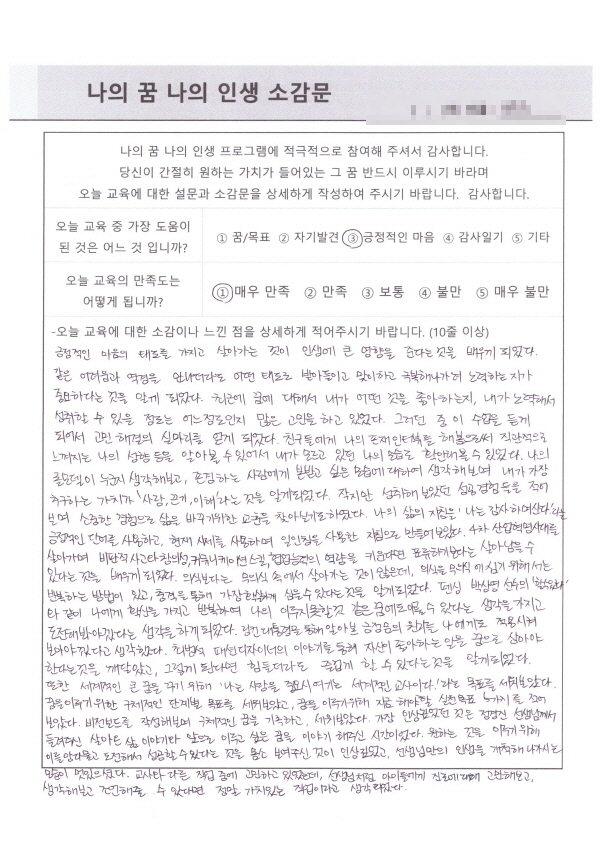 나의 꿈 나의 인생 소감문
나의 꿈 나의 인생 프로그램에 적극적으로 참여해 주셔서 감사합니다.
당신이 간절히 원하는 가치가 들어있는 그 꿈 반드시 이루시기 바라며
오늘 교육에 대한 설문과 소감문을 상세하게 작성하여 주시기 바랍니다. 감사합니다.
오늘 교육 중 가장 도움이
된 것은 어느 것 입니까?
① 꿈/목표 ② 자기발견 ③ 긍정적인 마음 ④ 감사일기 ⑤ 기타
오늘 교육의 만족도는
어떻게 됩니까?
① 매우 만족 ② 만족 ③ 보통 ④ 불만 ⑤ 매우 불만
-오늘 교육에 대한 소감이나 느낀 점을 상세하게 적어주시기 바랍니다. (10줄 이상)
긍정적인 마음의 태도를 가지고 살아가는 것이 인생에 큰 영향을 준다는 것을 배우게 되었다.
같은 어려움과 역경을 만나더라도 어떤 태도로 받아들이고 맞이하고 극복해나가려 노력하는지가
중요하다는 것을 알게 되었다. 최근에 꿈에 대해서 내가 어떤 것을 좋아하는지, 내가 노력해서
성취할 수 있을 정도는 어느정도인지 많은 고민을 하고 있었다. 그러던 중 이 수업을 듣게
되어서 고민 해결의 실마리를 얻게 되었다. 친구들에게 나의 인터뷰를 해봄으로써 직관적으로
느껴지는 나의 성향 등을 알아볼 수 있어서 내가 모르고 있던 나의 모습도 확인해볼 수 있었다. 나의
롤모델이 누군지 생각해보고, 존경하는 사람에게 본받고 싶은 모습에 대하여 생각해보며 내가 가장
추구하는 가치가 '사랑, 관계, 이해'라는 것을 알게되었다. 작지만 성취해 보았던 성공경험들을 적어
보며 소중한 경험으로 삶은 바꾸기위한 교훈을 찾아보기도하였다. 나의 삶의 지침을 '나는 감사하며산다'
긍정적인 단어를 사용하고, 현재 시제를 사용하여 일인칭을 사용한 지침으로 만들어 보았다. 4차 산업혁명시대를
살아가며 비판적사고와 창의성, 커뮤니케이션 스킬, 협업능력의 역량을 키운다면 살아남을 수
있다는 것을 배우게 되었다. 의식보다는 무의식 속에서 살아가는 것이 많은데, 의식을 무의식에 심기 위해서는
반복하는 방법이 있고, 충격을 통해 가장 심을 수 있다는 것을 알게되었다. 펜싱 박상영 선수의 '할수있다'
와 같이 나에게 확신을 가지고 반복하여 나의 이루지못할것 같은 꿈에도 수 있다는 생각을 가지고
도전해봐야겠다는 생각을 하게 되었다. 링컨 대통령을 통해 알아본 긍정의 나에게도 적용시켜
보아야겠다고 생각했다. 최범석 패션디자이너의 이야기를 통해 자신이 좋아하는 일을 꿈으로 삼아야
한다는 것을 깨달았고, 그렇게 된다면 힘들더라도 즐겁게 할 수 있다는 것을 알게되었다.
또한 세계적인 큰 꿈을 꾸기 위해 '나는 사랑을 세계적인 교사이다.'라는 목표를 세워보았다.
꿈을이루기 위한 구체적인 단계별 목표를 세워보았고, 꿈을 이루기위해 지금 해야할 실천목표 5가지를 적어
보았다. 비전보드를 작성해보며 구체적인 꿈을 기록하고, 세워보았다. 가장 인상깊었던 것은 선생님께서
들려주신 살아온 삶 이야기와 앞으로 이루고 싶은 꿈을 이야기 해주신 시간이었다. 원하는 것을 이루기 위해
이를 악물고 도전해서 성공할 수 있다는 것을 몸소 보여주신 것이 인상깊었고, 선생님만의 인생을 개척해 나가시는
모습이 멋있으셨다. 교사와 다른 직업 중에 고민하고 있었는데, 선생님처럼 아이들에게 진로에 대해 고민해보고,
생각해보고 조언해줄 수 있다면 정말 가치있는 직업이라고 생각하였다.